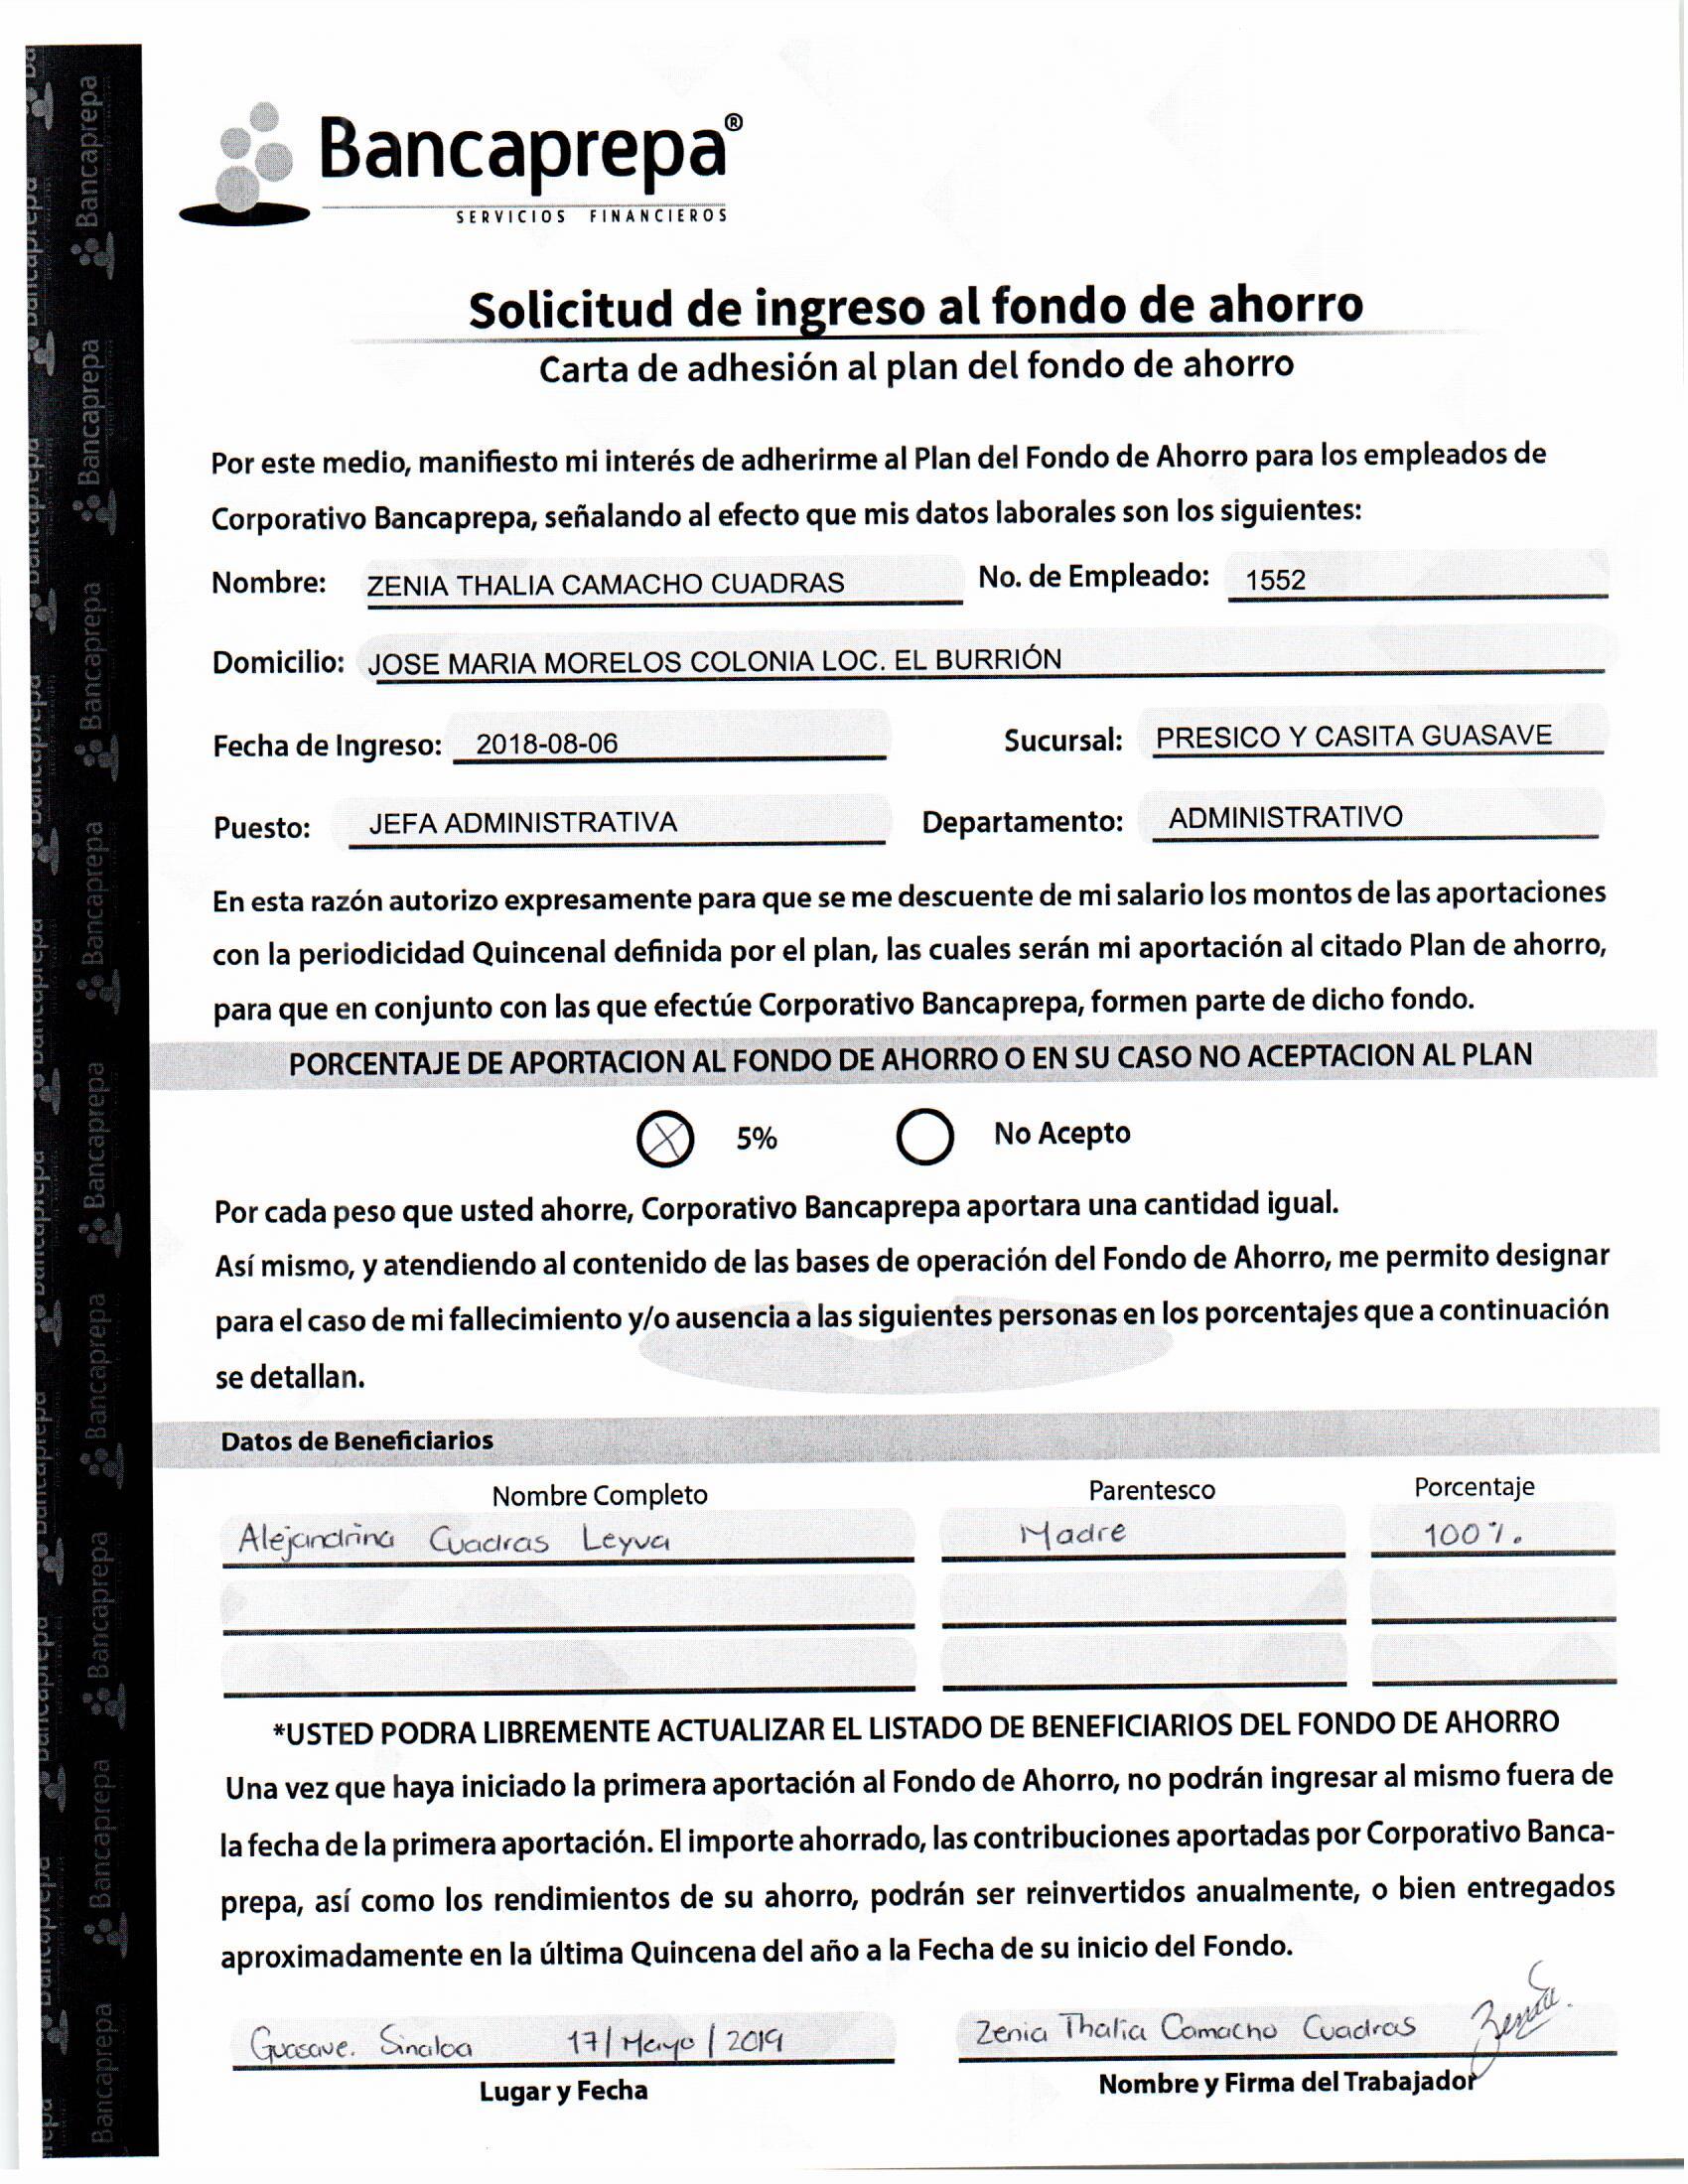 Bancaprepa®
SERVICIOS FINANCIEROS
Solicitud de ingreso al fondo de ahorro
Carta de adhesión al plan del fondo de ahorro
Por este medio, manifiesto mi interés de adherirme al Plan del Fondo de Ahorro para los empleados de
Corporativo Bancaprepa, señalando al efecto que mis datos laborales son los siguientes:
Nombre: ZENIA THALIA CAMACHO CUADRAS No. de Empleado: 1552
Domicilio: JOSE MARIA MORELOS COLONIA LOC. EL BURRIÓN
Fecha de Ingreso: 2018-08-06 Sucursal: PRESICO Y CASITA GUASAVE
Puesto: JEFA ADMINISTRATIVA Departamento: ADMINISTRATIVO
En esta razón autorizo expresamente para que se me descuente de mi salario los montos de las aportaciones
con la periodicidad Quincenal definida por el plan, las cuales serán mi aportación al citado Plan de ahorro,
para que en conjunto con las que efectúe Corporativo Bancaprepa, formen parte de dicho fondo.
PORCENTAJE DE APORTACION AL FONDO DE AHORRO O EN SU CASO NO ACEPTACION AL PLAN
X 5% No Acepto
Por cada peso que usted ahorre, Corporativo Bancaprepa aportara una cantidad igual.
Así mismo, y atendiendo al contenido de las bases de operación del Fondo de Ahorro, me permito designar
para el caso de mi fallecimiento y/o ausencia a las siguientes personas en los porcentajes que a continuación
se detallan.
Datos de Beneficiarios
Nombre Completo Parentesco Porcentaje
Alejandrina Cuadras Leyva Madre 100%.
*USTED PODRA LIBREMENTE ACTUALIZAR EL LISTADO DE BENEFICIARIOS DEL FONDO DE AHORRO
Una vez que haya iniciado la primera aportación al Fondo de Ahorro, no podrán ingresar al mismo fuera de
la fecha de la primera aportación. El importe ahorrado, las contribuciones aportadas por Corporativo Banca-
prepa, así como los rendimientos de su ahorro, podrán ser reinvertidos anualmente, o bien entregados
aproximadamente en la última Quincena del año a la Fecha de su inicio del Fondo.
Guasave. Sinaloa 17/Mayo/2019 Zenia Thalia Camacho Cuadras Zenia.
Lugar y Fecha Nombre y Firma del Trabajador
Bancaprepa
Bancaprepa
Bancaprepa
Bancaprepa
Bancaprepa
Bancaprepa
Bancaprepa
Bancaprepa
Bancaprepa